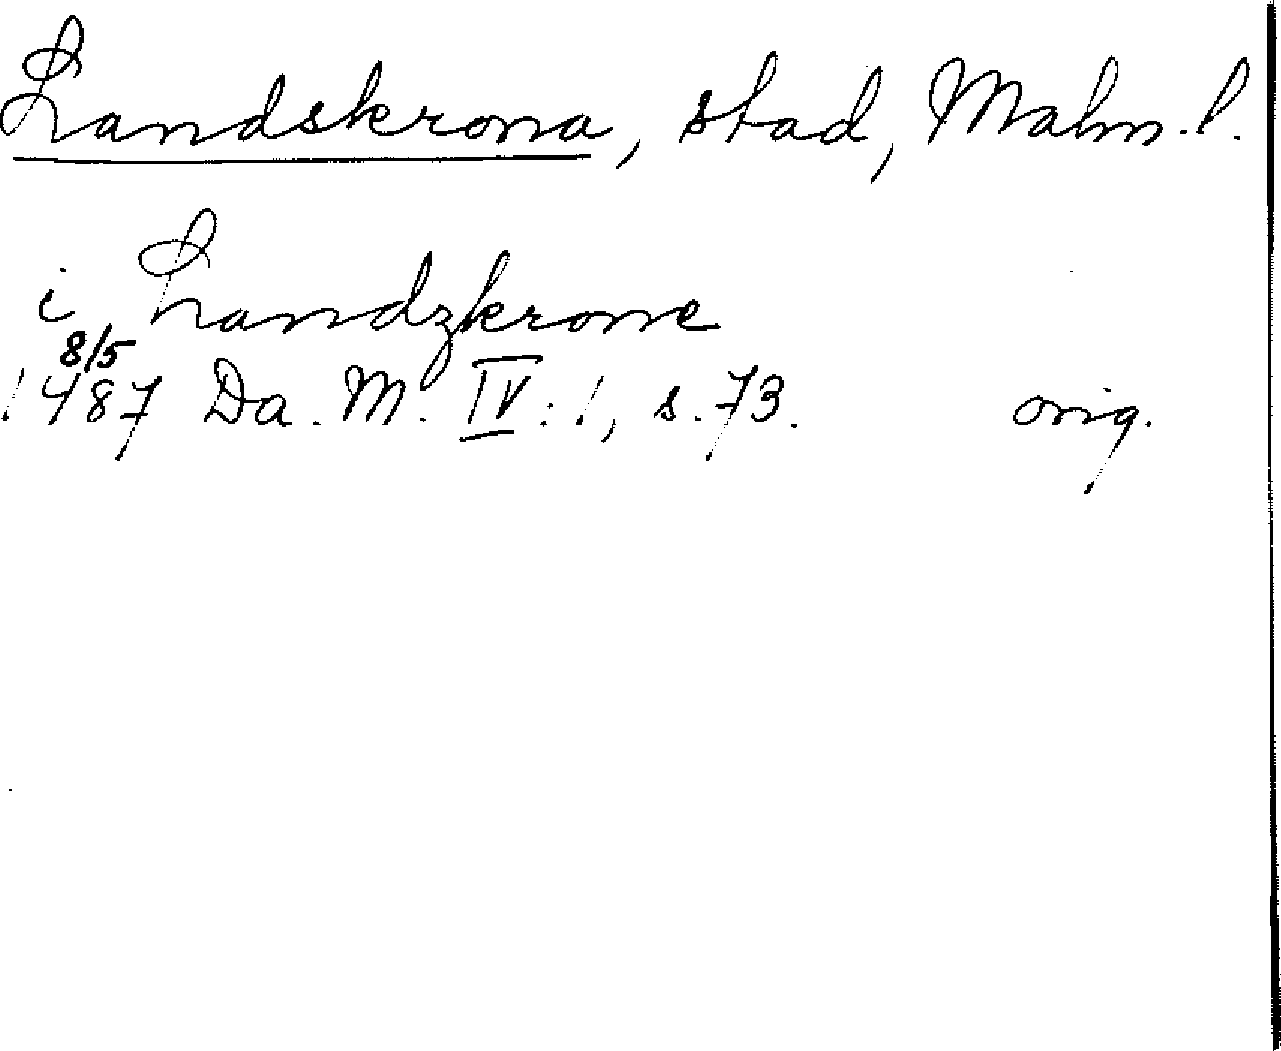 Landskrona, stad, Malm. l.
i Landzkrone
8/5
1487 Da. M. IV: 1, s. 73. orig.